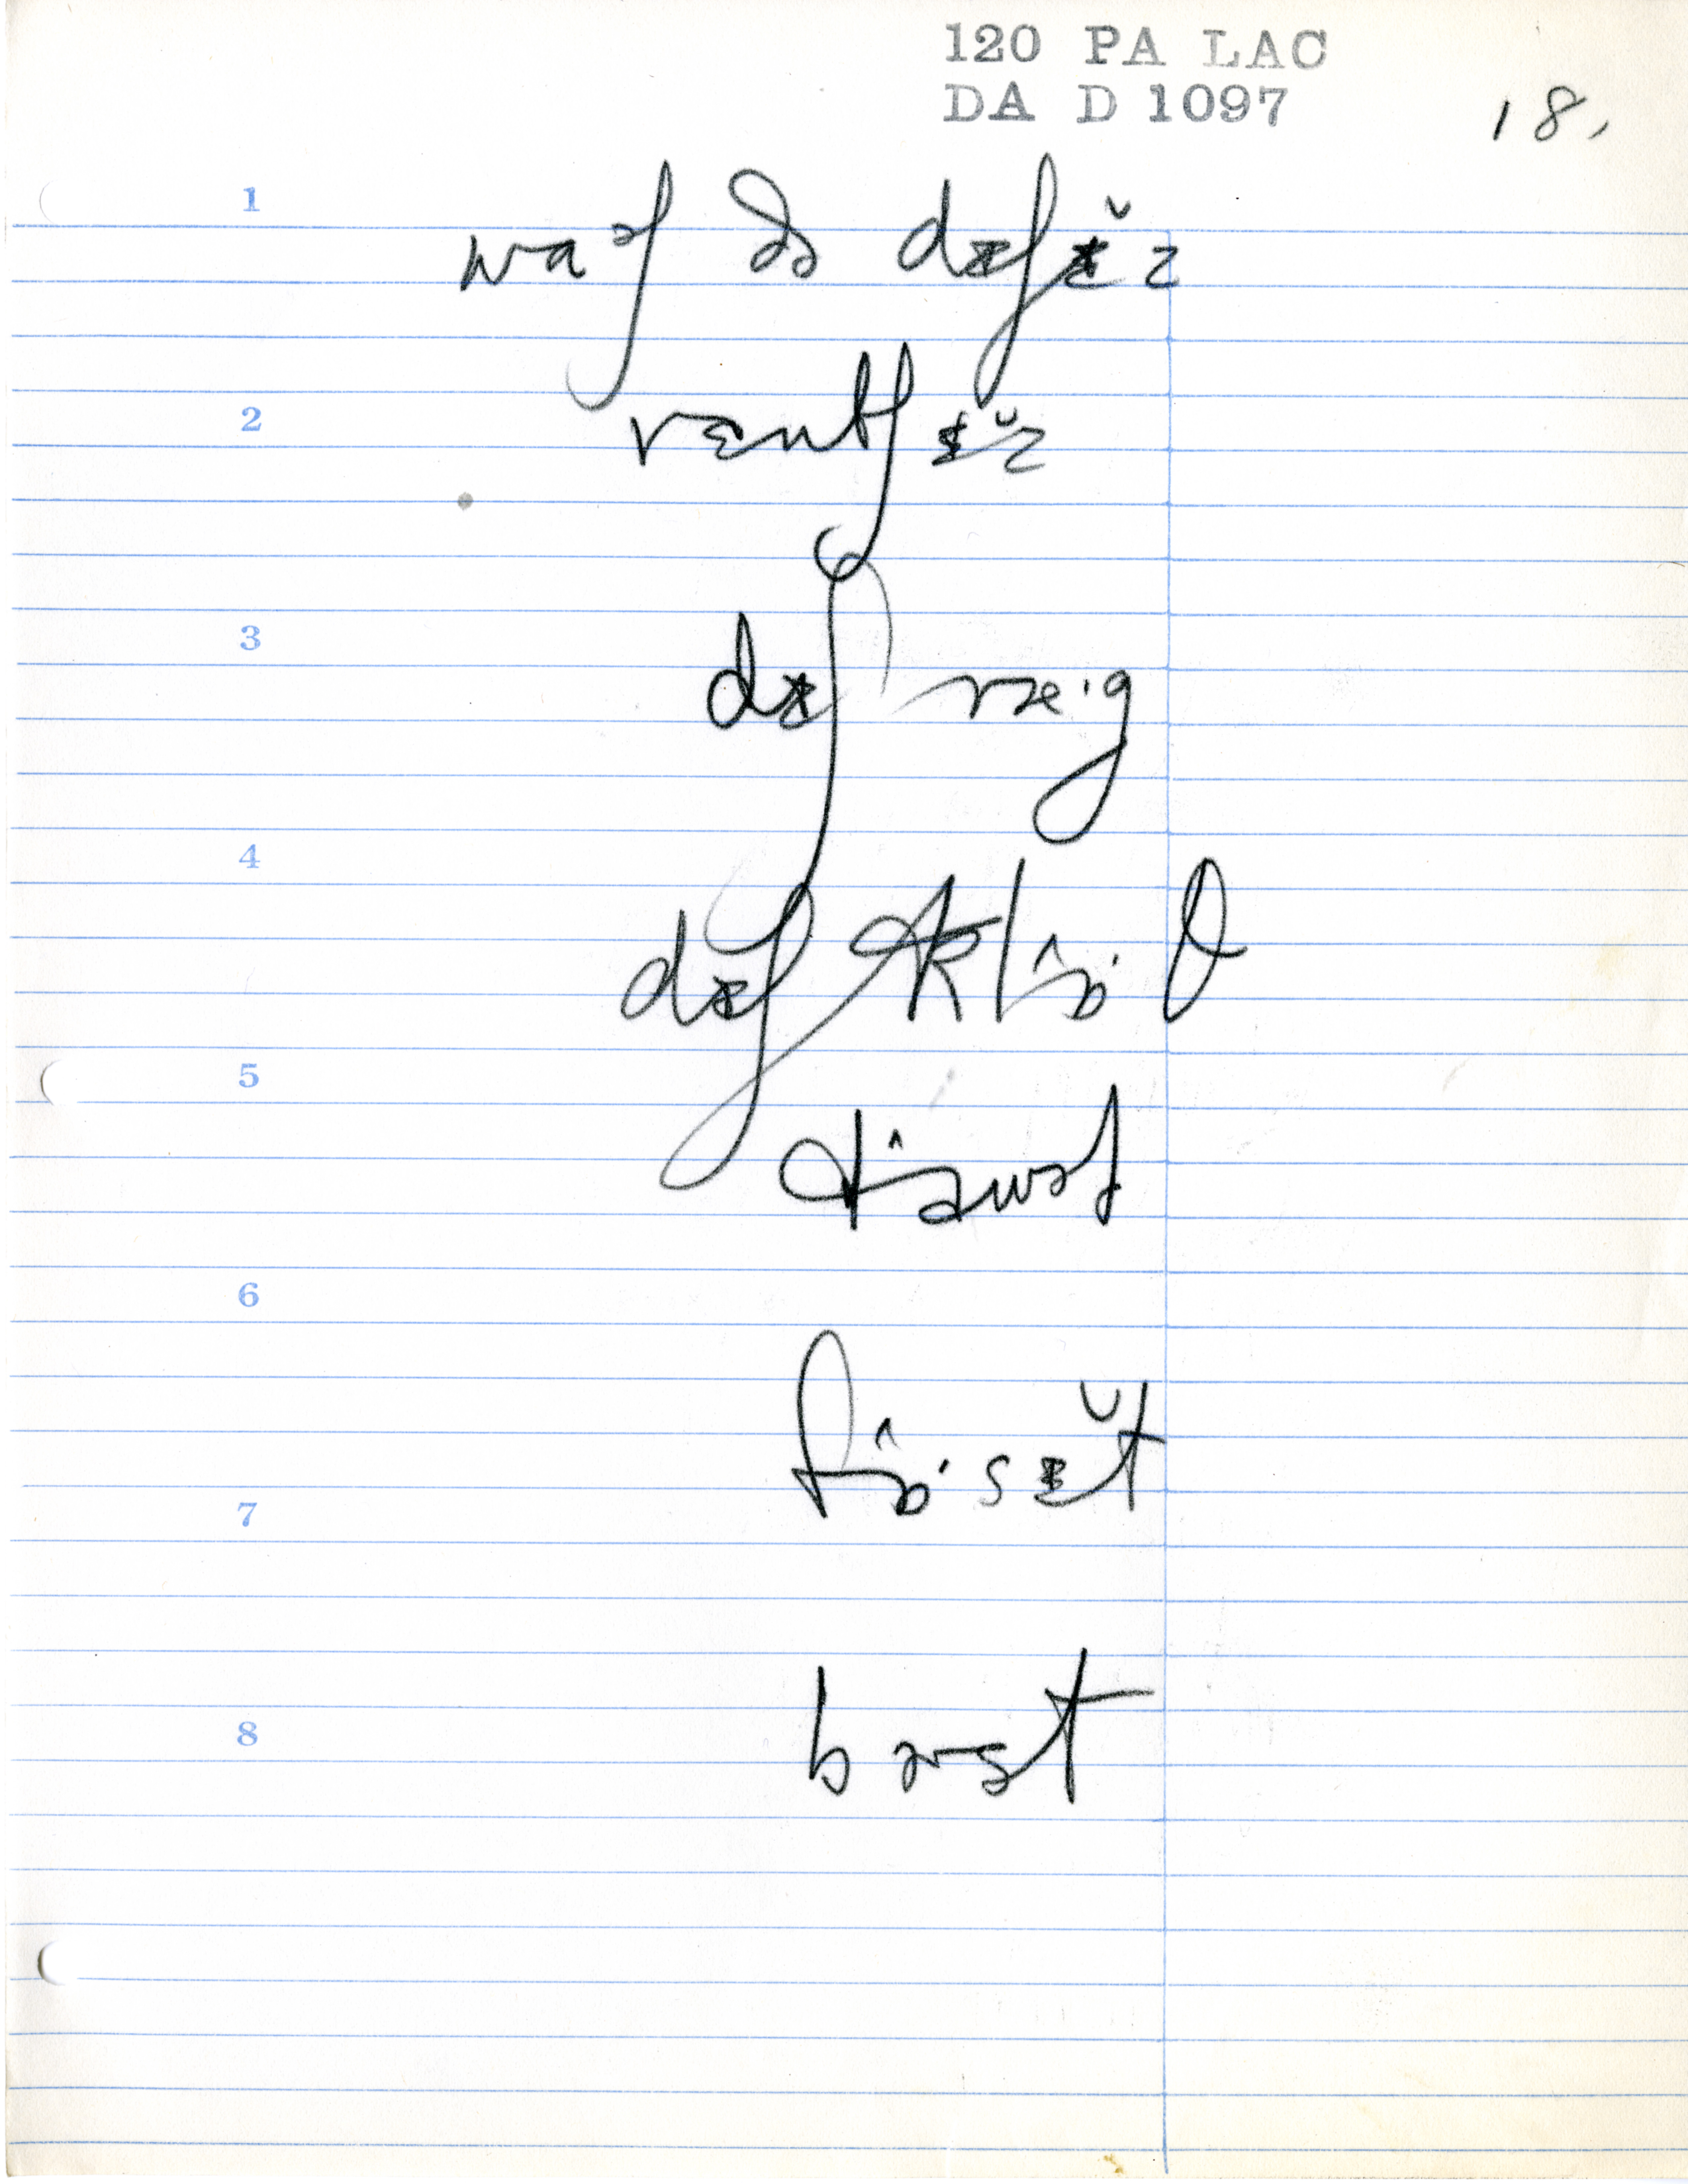 120 PA LAC
DA D 1097
18.
1
waᵊʃ ðə dɪʃɪ̆z
2
rɛntʃɪ̆z
3
dɪʃ ræ·g
4
dɪʃ klɔ̂·θ
5
tâwəl
6
fɔ̂·sɪ̆t
7
8
bɚst